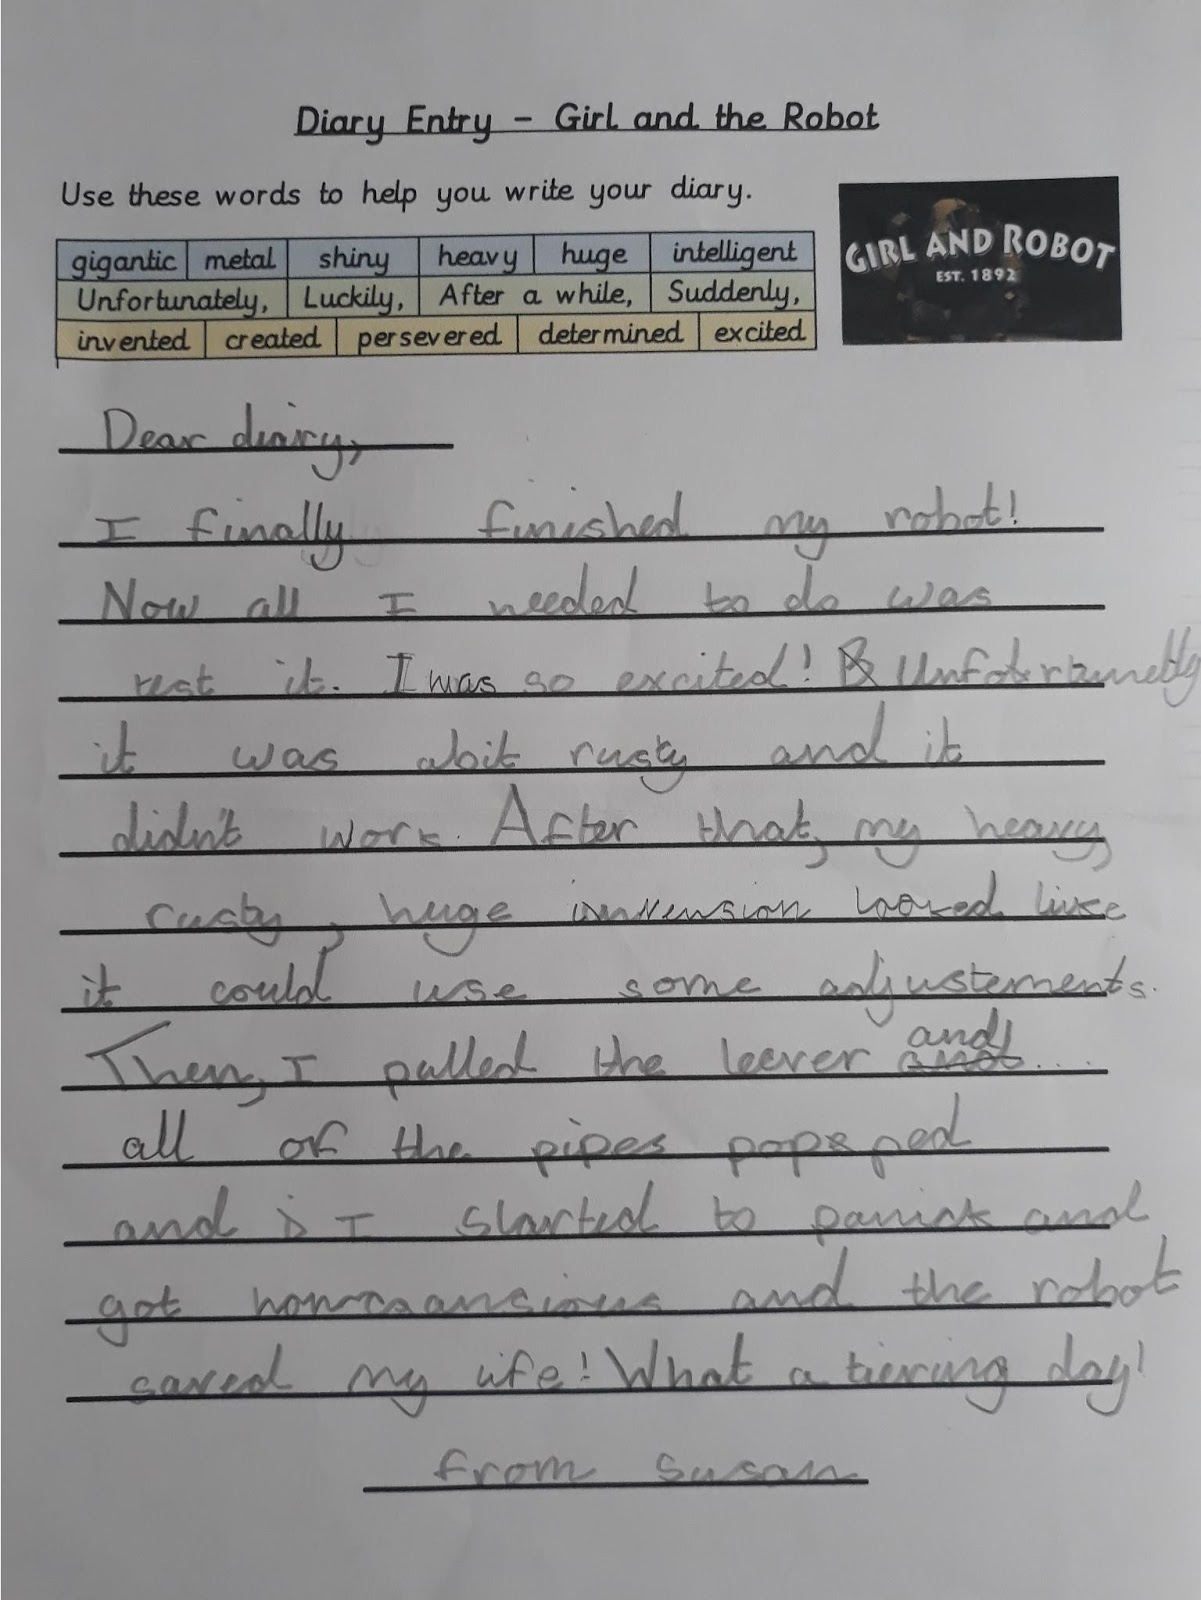 Diary Entry - Girl and the Robot
Use these words to help you write your diary.
GIRL AND ROBOT
EST. 1892
gigantic metal shiny heavy huge intelligent
Unfortunately, Luckily, After a while, Suddenly,
invented created persevered determined excited
Dear diairy,
I finally finished my robot!
Now all I needed to do was
test it. I was so excited! Unfotertunetly
it was abit rusty and it
didn't work. After that, my heavy,
rusty, huge invension looked like
it could use some adjustements.
Then, I pulled the leever and ....
all of the pipes popped
and I started to panick and
got and the robot
saved my life! What a tiering day!
from Susan